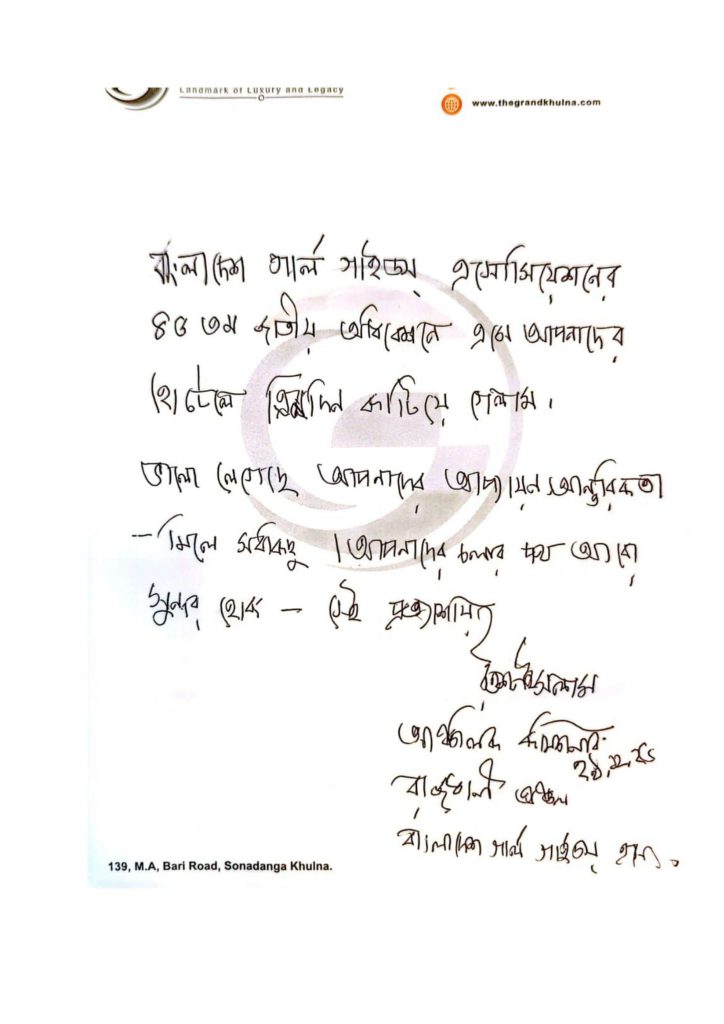 Landmark of Luxury and Legacy
www.thegrandkhulna.com
বাংলাদেশ গার্ল গাইডস্ এসোসিয়েশনের
তম জাতীয় অধিবেশনে এসে আপনাদের
হোটেলে কাটিয়ে গেলাম।
ভালো লেগেছে আপনাদের আপ্যায়ন আন্তরিকতা
- মিলে সবকিছু। আপনাদের চলার পথ আরো
সুন্দর হোক - এই প্রত্যাশায়
আঞ্চলিক কমিশনার
রাজশাহী অঞ্চল
বাংলাদেশ গার্ল গাইডস্
139, M.A, Bari Road, Sonadanga Khulna.